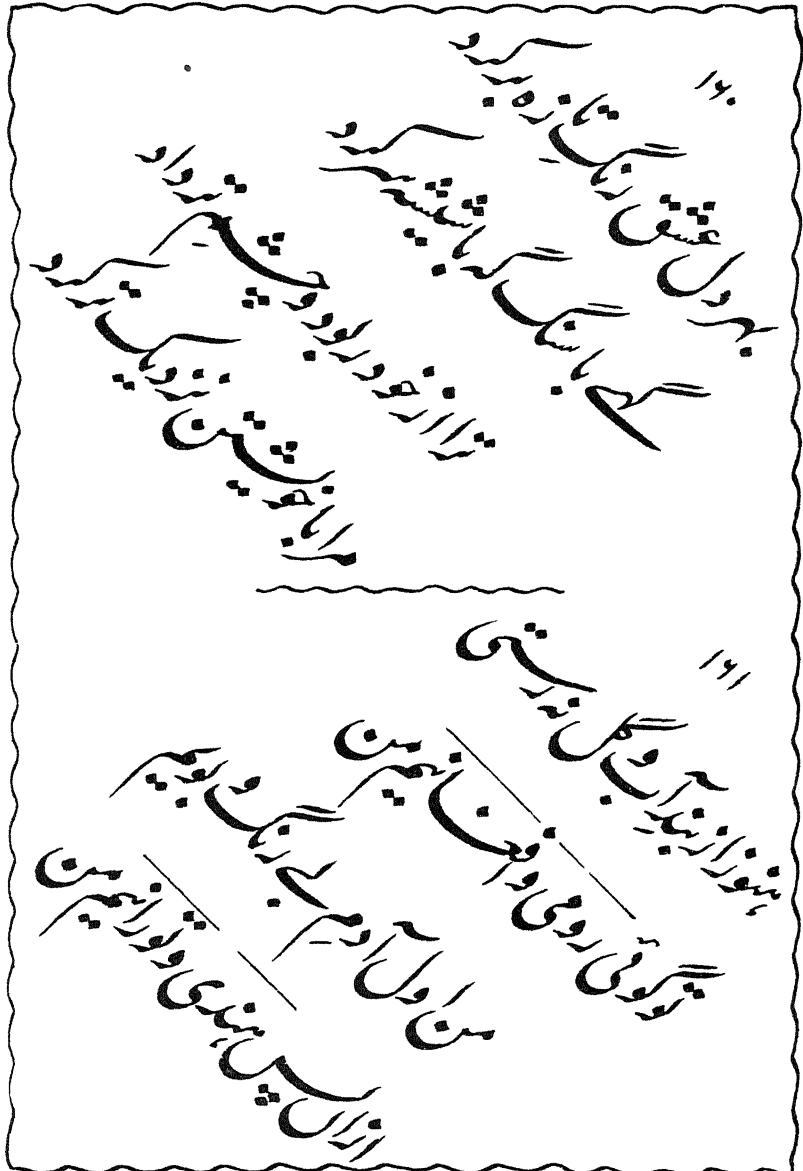 ۱۶۰
بہر دل عشق رنگِ تازه بر کرد
گہے با سنگ گہ با شیشہ سر کرد
ترا از خود ربود و چشمِ تر داد
مرا با خویشتن نزدیک تر کرد
۱۶۱
ہنوز از بندِ آب و گل نہ رستی
تو گوئی رومی و افغانیم من
من اول آدمِ بے رنگ و بویم
ازاں پس ہندی و تورانیم من